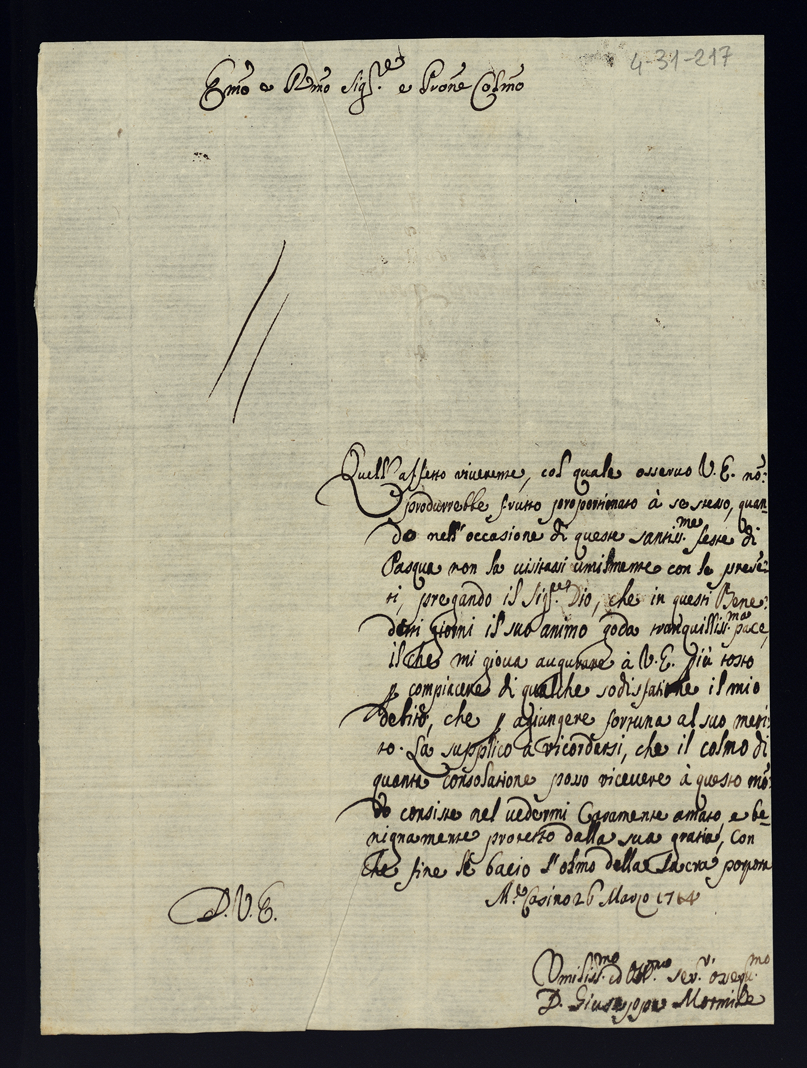 4-31-217
Emo e Rmo Sig.re e Prone Colmo
Quell'affetto riverente, col quale osservo V. E. nõ
produrrebbe frutto proportionato à se stesso, quan-
do nell'occasione di queste santiss.me feste di
Pasqua non la visitassi umilmente con le presẽ-
ti, pregando il Sig.re Dio, che in questi Bene-
detti giorni il suo animo goda tranquilliss.ma pace,
il che mi giova augurare à V. E. più tosto
p compiacere di qualche sodisfatione il mio
debito, che p agiungere fortuna al suo meri-
to. La supplico a ricordarsi, che il colmo di
quante consolatione posso ricevere à questo mõ-
do consiste nel vedermi caramente amato, e be-
nignamente protetto dalla sua gratia, con
che fine le bacio l'olmo della sacra porpora
M.te Casino 26 Marzo 1714
D. V. E.
Umiliss.mo ed Obl.mo ser.r ossequ.mo
D. Giuseppe Mormile